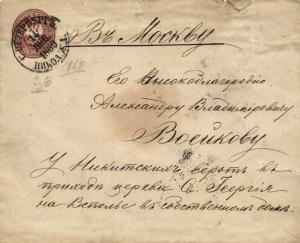 С.ПЕТЕРБУРГЪ
Въ Москву
Его Высокоблагородію
Александру Владиміровичу
Воейкову
У Никитскихъ воротъ въ
приходѣ церкви Св. Георгія
на Вспольѣ въ собственномъ домѣ.